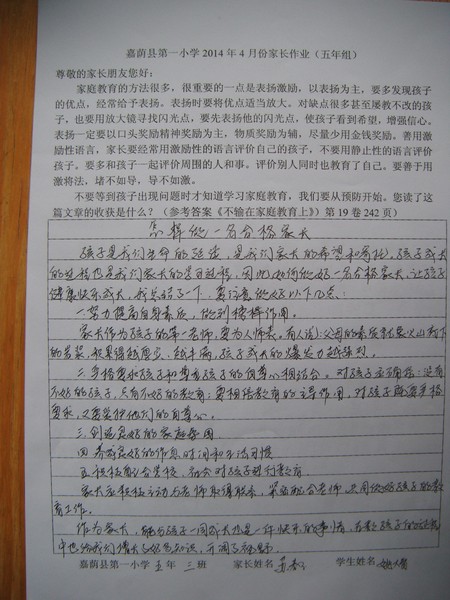 嘉荫县第一小学2014年4月份家长作业（五年组）
尊敬的家长朋友您好：
家庭教育的方法很多，很重要的一点是表扬激励，以表扬为主，要多发现孩子
的优点，经常给予表扬。表扬时要将优点适当放大。对缺点很多甚至屡教不改的孩
子，也要用放大镜寻找闪光点，要先表扬他的闪光点，使孩子看到希望，增强信心。
表扬一定要以口头奖励精神奖励为主，物质奖励为辅，尽量少用金钱奖励。善用激
励性语言，家长要经常用激励性的语言评价自己的孩子，不要用静止性的语言评价
孩子。要多和孩子一起评价周围的人和事。评价别人同时也教育了自己。要善于用
激将法，堵不如导，导不如激。
不要等到孩子出现问题时才知道学习家庭教育，我们要从预防开始。您读了这
篇文章的收获是什么？（参考答案《不输在家庭教育上》）第19卷242页）
怎样做一名合格家长
孩子是我们生命的延续，是我们家长的希望和寄托，孩子成长
的过程也是我们家长的学习过程，因此如何做好一名合格家长，让孩子
健康快乐成长，我总结了一下，要注意做好以下几点：
一.努力提高自身素质，做到榜样作用。
家长作为孩子的第一老师，要为人师表，有人说：父母的素质就象火山下
的岩浆，积累得越厚，越丰富，孩子成长的爆发力越强烈。
二.严格要求孩子和尊重孩子的自尊心相结合。对孩子要明确：没有
不好的孩子，只有不好的教育；要相信教育的主导作用，对孩子既要严格
要求，又要爱护他们的自尊心。
三.创造良好的家庭氛围
四.养成良好的作息时间和生活习惯
五.积极配合学校，结合对孩子进行教育
家长应积极主动与老师取得联系，紧密配合老师，共同做好孩子的教
育工作。
作为家长，能与孩子一同成长也是一件快乐的事情，在教孩子的过程
中也给我们增长了好多知识，开阔了视野。
嘉荫县第一小学 五 年 三 班 家长姓名 学生姓名